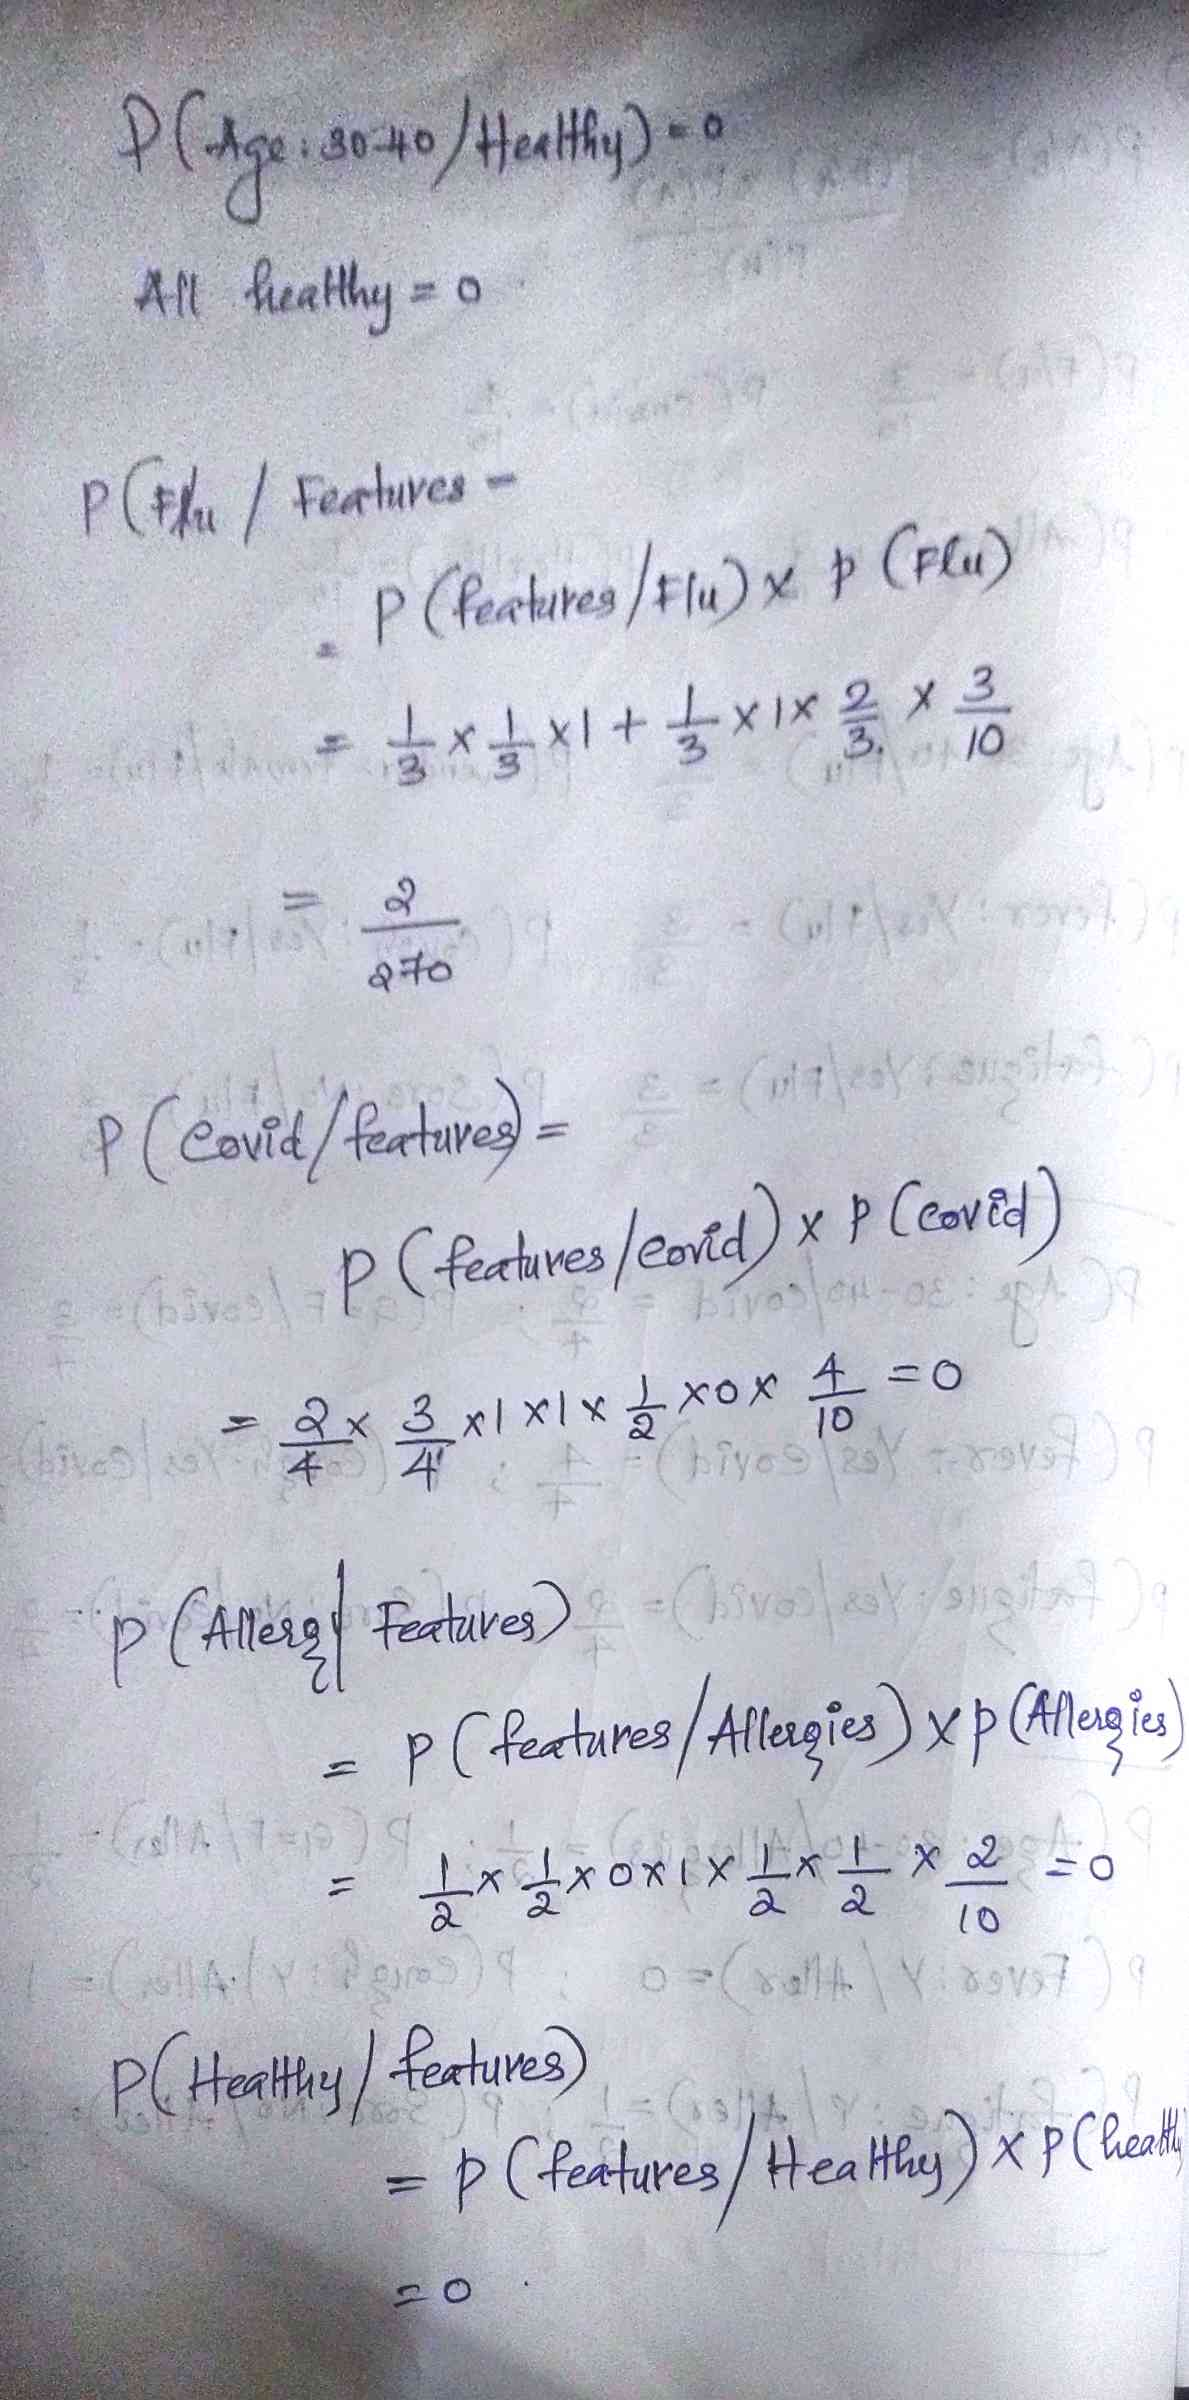 P(Age: 30-40/Healthy) = 0
All healthy = 0
P(Flu / Features =
= P(features/Flu) x P(Flu)
= 1/3 x 1/3 x 1 + 1/3 x 1 x 2/3. x 3/10
= 2/270
P(Covid/features) =
P(features/covid) x P(covid)
= 2/4 x 3/4 x 1 x 1 x 1/2 x 0 x 4/10 = 0
P(Allergy/Features)
= P(features/Allergies) x P(Allergies)
= 1/2 x 1/2 x 0 x 1 x 1/2 x 1/2 x 2/10 = 0
P(Healthy/features)
= P(features/Healthy) x P(healthy
= 0